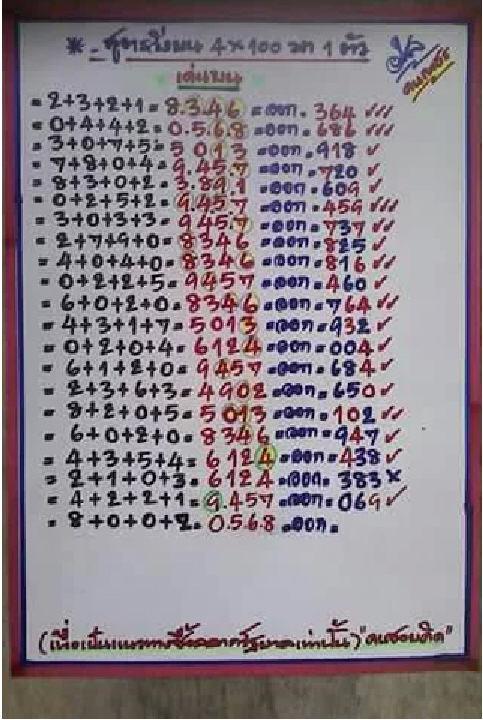 * - สูตรวิ่งบน 4×100 มา 1 ตัว
เด่นบน
= 2+3+2+1 = 8.3.46 = ออก . 364 ✓✓✓
= 0+4+4+2 = 0.5.6.8 = ออก = 686 ✓✓✓
= 3+0+7+5 = 5 0 1 3 = ออก = 918 ✓
= 7+8+0+4 = 9.45.7 = ออก . 720 ✓
= 8+3+0+2 = 3.89.1 = ออก = 609 ✓
= 0+2+5+2 = 9.45.7 = ออก = 459 ✓✓✓
= 3+0+3+3 = 945.7 = ออก = 737 ✓✓
= 2+7+9+0 = 8346 = ออก = 825 ✓
= 4+0+4+0 = 8346 = ออก = 816 ✓✓
= 0+2+2+5 = 9457 = ออก = 460 ✓
= 6+0+2+0 = 8346 = ออก = 764 ✓✓
= 4+3+1+7 = 5013 = ออก = 932 ✓
= 0+2+0+4 = 6124 = ออก = 004 ✓
= 6+1+2+0 = 9457 = ออก = 684 ✓
= 2+3+6+3 = 4902 = ออก = 650 ✓
= 8+2+0+5 = 5013 = ออก = 102 ✓✓
= 6+0+2+0 = 8346 = ออก = 947 ✓
= 4+3+5+4 = 6124 = ออก = 438 ✓
= 2+1+0+3 = 6124 = ออก . 383 ×
= 4+2+2+1 = 9.457 = ออก . 069 ✓
= 8+0+0+2 = 0.5.6.8 = ออก =
(เพื่อเป็นแนวทางซื้อสลากรัฐบาลเท่านั้น) "คนชอบคิด"